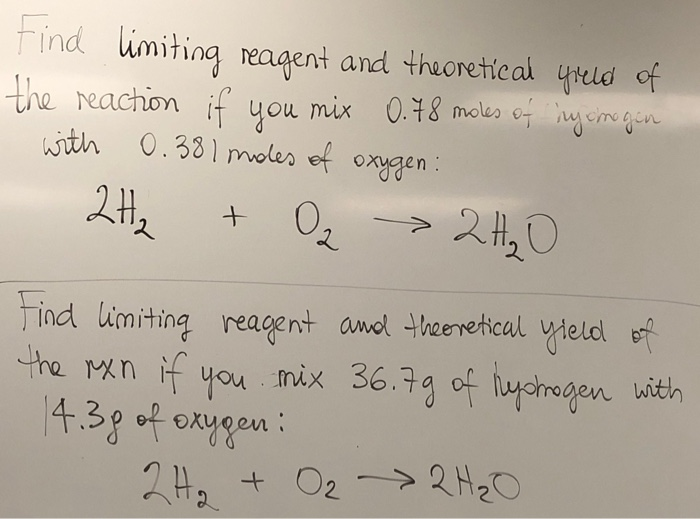 Find limiting reagent and theoretical yield of
the reaction if you mix 0.78 moles of hydrogen
with 0.381 moles of oxygen:
2H₂ + O₂ → 2H₂O
Find limiting reagent and theoretical yield of
the rxn if you mix 36.7g of hydrogen with
14.3g of oxygen:
2H₂ + O₂ → 2H₂O